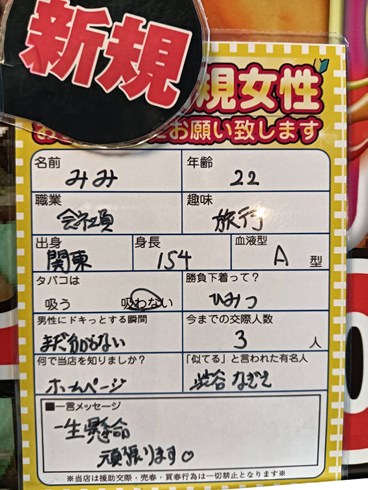 新規
規女性
お願い致します
名前
みみ
年齢
22
職業
会社員
趣味
旅行
出身
関東
身長
154
血液型
A 型
タバコは
吸う 吸わない
勝負下着って?
ひみつ
男性にドキっとする瞬間
まだわからない
今までの交際人数
3 人
何で当店を知りましたか?
ホームページ
「似てる」と言われた有名人
渋谷なぎさ
■一言メッセージ
一生懸命
頑張ります♡
※当店は援助交際・売春・買春行為は一切禁止となります※